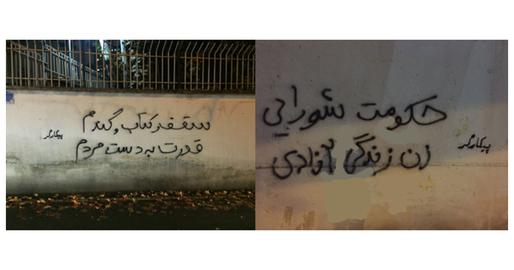 سقف، کتاب، گندم
قدرت به دست مردم
پیکارگر
حکومت شورایی
زن زندگی آزادی
پیکارگر